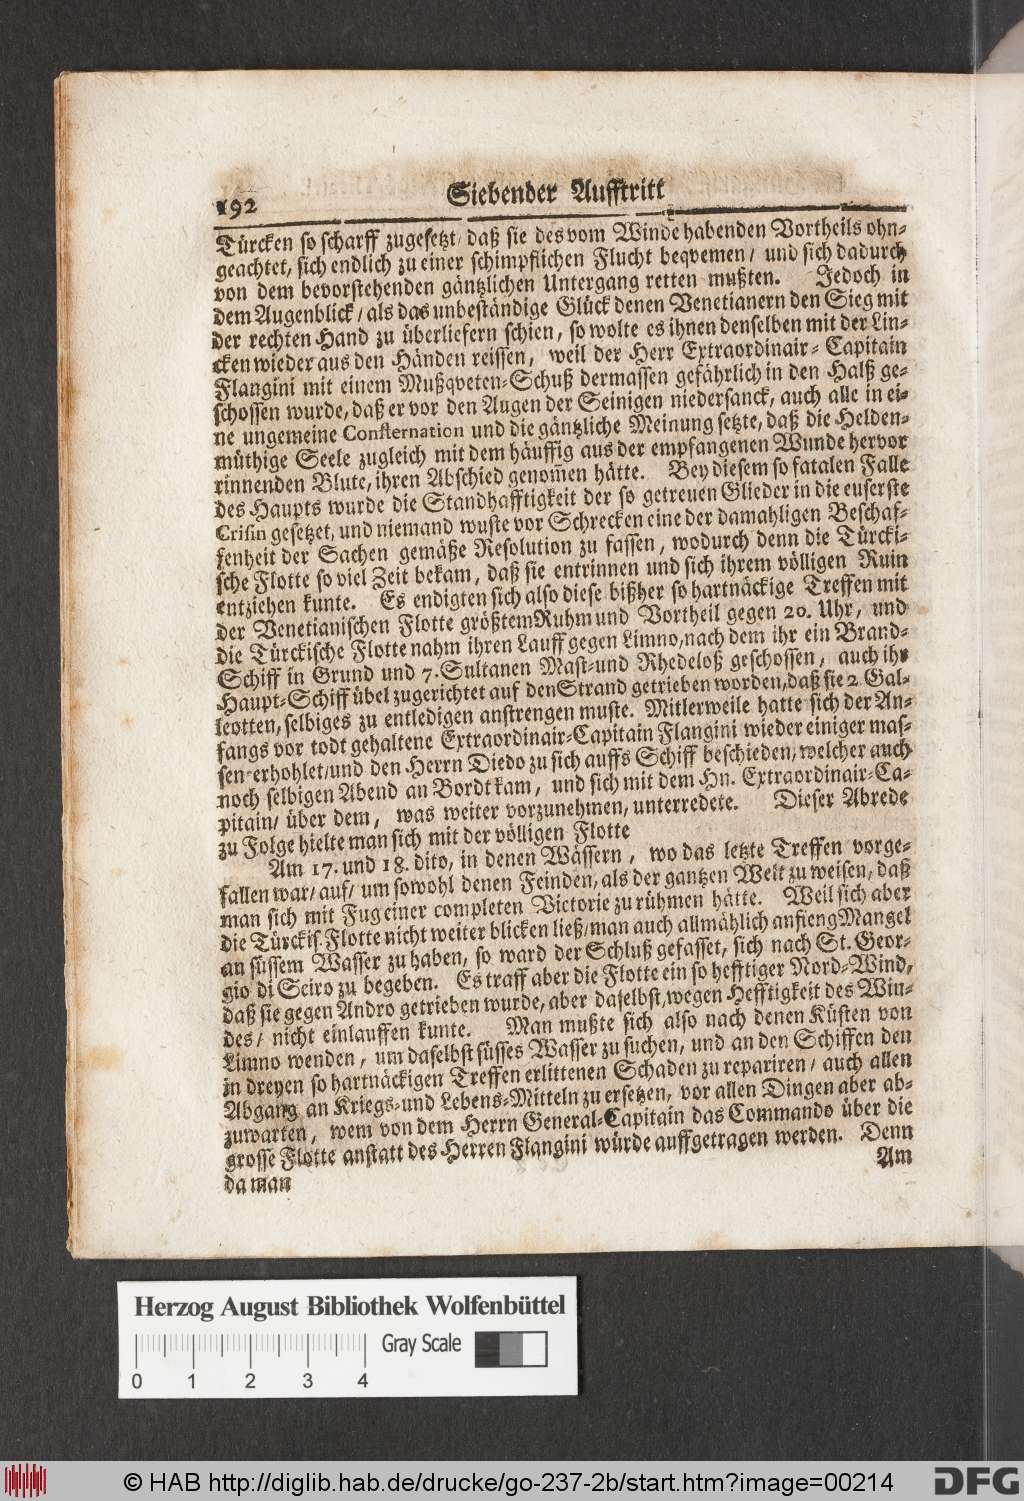 192
Siebender Aufftritt
Türcken so scharff zugesetzt/ daß sie des vom Winde habenden Vortheils ohn-
geachtet, sich endlich zu einer schimpflichen Flucht beqvemen/ und sich dadurch
von dem bevorstehenden gäntzlichen Untergang retten mußten. Jedoch in
dem Augenblick/ als das unbeständige Glück denen Venetianern den Sieg mit
der rechten Hand zu überliefern schien, so wolte es ihnen denselben mit der Lin-
cken wieder aus den Händen reissen, weil der Herr Extraordinair-Capitain
Flangini mit einem Mußqveten-Schuß dermassen gefährlich in den Halß ge-
schossen wurde, daß er vor den Augen der Seinigen niedersanck, auch alle in ei-
ne ungemeine Consternation und die gäntzliche Meinung setzte, daß die Helden-
müthige Seele zugleich mit dem häuffig aus der empfangenen Wunde hervor
rinnenden Blute, ihren Abschied genom̃en hätte. Bey diesem so fatalen Falle
des Haupts wurde die Standhafftigkeit der so getreuen Glieder in die euserste
Crisin gesetzet, und niemand wuste vor Schrecken eine der damahligen Beschaf-
fenheit der Sachen gemäße Resolution zu fassen, wodurch denn die Türcki-
sche Flotte so viel Zeit bekam, daß sie entrinnen und sich ihrem völligen Ruin
entziehen kunte. Es endigten sich also diese bißher so hartnäckige Treffen mit
der Venetianischen Flotte größtem Ruhm und Vortheil gegen 20. Uhr, und
die Türckische Flotte nahm ihren Lauff gegen Limno, nach dem ihr ein Brand-
Schiff in Grund und 7. Sultanen Mast- und Rhedeloß geschossen, auch ihr
Haupt-Schiff übel zugerichtet auf den Strand getrieben worden, daß sie 2 Gal-
leotten, selbiges zu entledigen anstrengen muste. Mitlerweile hatte sich der An-
fangs vor todt gehaltene Extraordinair-Capitain Flangini wieder einiger mas-
sen erhohlet/ und den Herrn Diedo zu sich auffs Schiff beschieden, welcher auch
noch selbigen Abend an Bordt kam, und sich mit dem Hn. Extraordinair-Ca-
pitain/ über dem, was weiter vorzunehmen, unterredete. Dieser Abrede
zu Folge hielte man sich mit der völligen Flotte
Am 17. und 18. dito, in denen Wässern, wo das letzte Treffen vorge-
fallen war/ auf/ um sowohl denen Feinden, als der gantzen Welt zu weisen, daß
man sich mit Fug einer completen Victorie zu rühmen hätte. Weil sich aber
die Türckis. Flotte nicht weiter blicken ließ/ man auch allmählich anfieng Mangel
an süssem Wasser zu haben, so ward der Schluß gefasset, sich nach St. Geor-
gio di Sciro zu begeben. Es traff aber die Flotte ein so hefftiger Nord-Wind,
daß sie gegen Andro getrieben wurde, aber daselbst, wegen Hefftigkeit des Win-
des/ nicht einlauffen kunte. Man mußte sich also nach denen Küsten von
Limno wenden, um daselbst süsses Wasser zu suchen, und an den Schiffen den
in dreyen so hartnäckigen Treffen erlittenen Schaden zu repariren/ auch allen
Abgang an Kriegs- und Lebens-Mitteln zu ersetzen, vor allen Dingen aber ab-
zuwarten, wem von dem Herrn General-Capitain das Commando über die
grosse Flotte anstatt des Herren Flangini würde auffgetragen werden. Denn
da man
Am
Herzog August Bibliothek Wolfenbüttel
Gray Scale
0 1 2 3 4
© HAB http://diglib.hab.de/drucke/go-237-2b/start.htm?image=00214
DFG